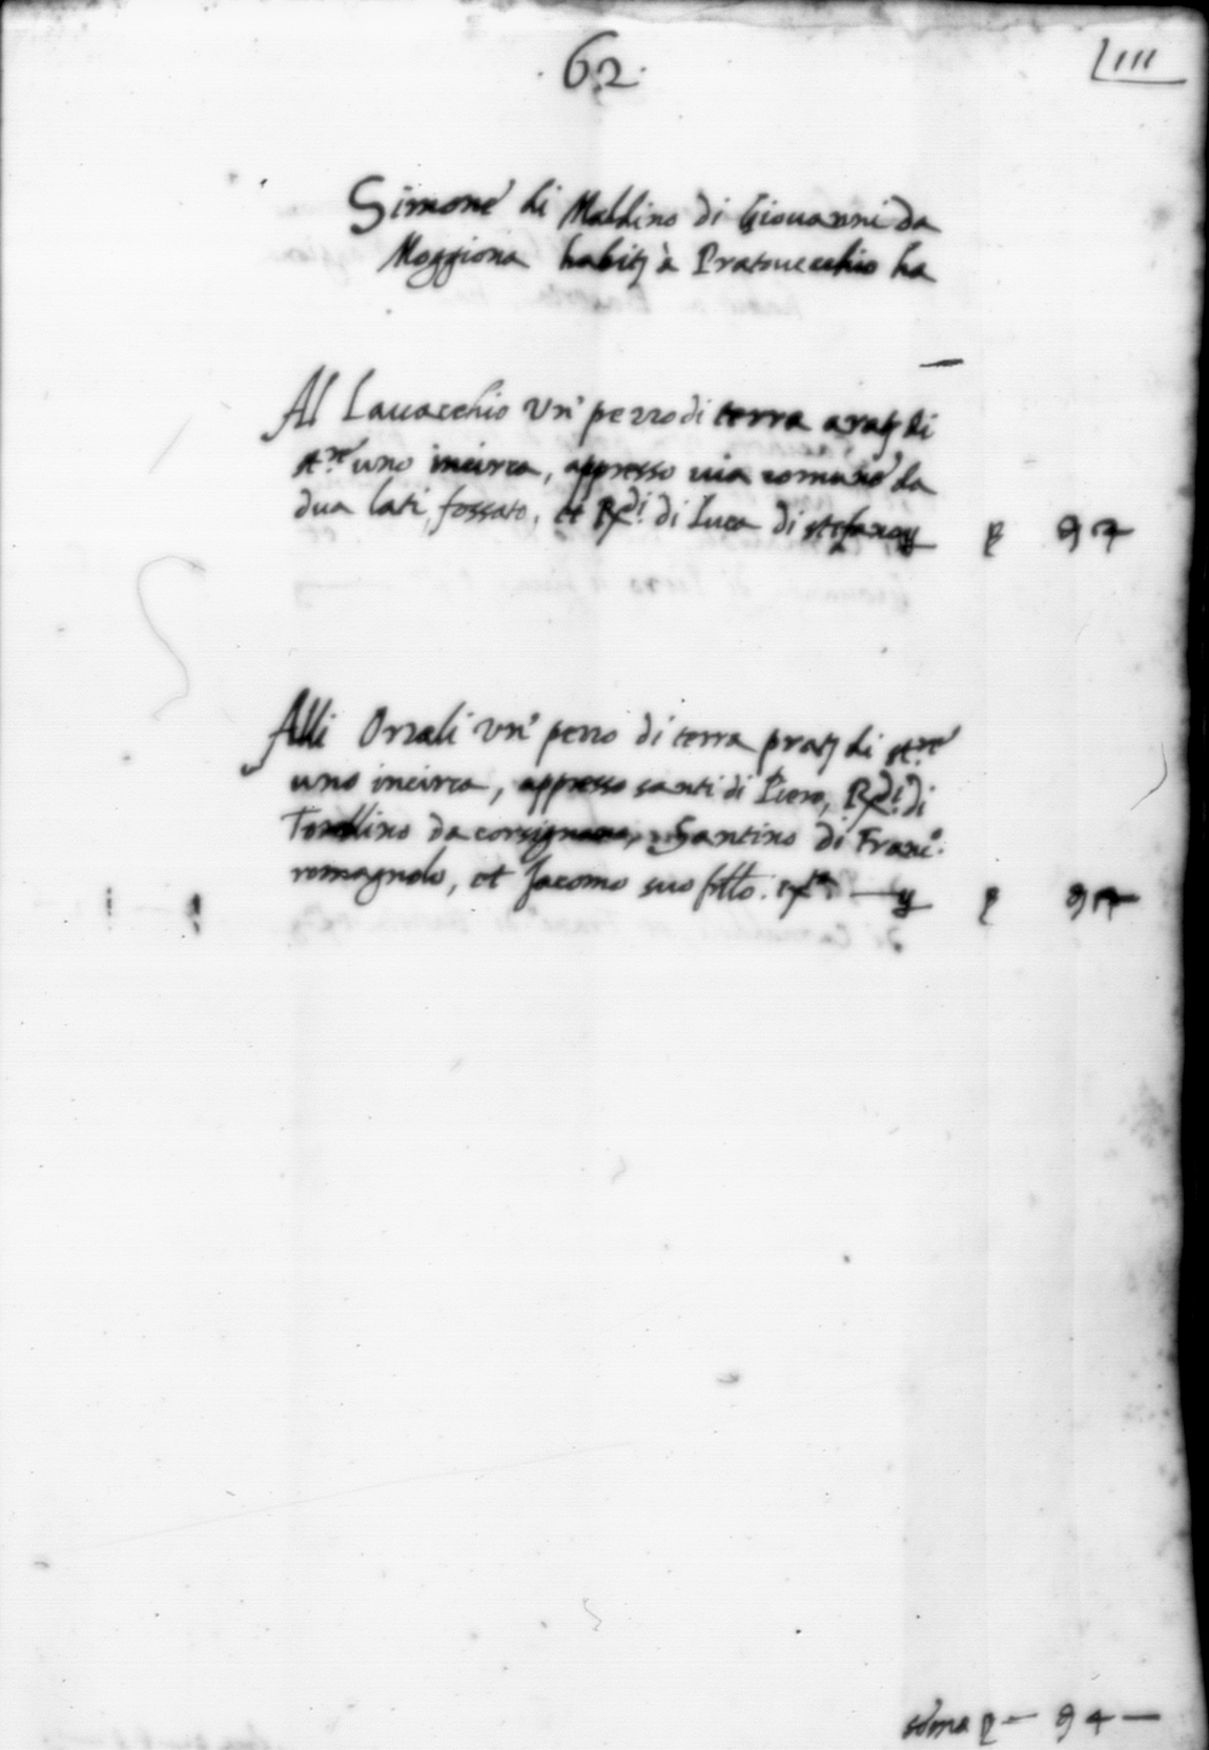 .62.
111
Simone di Maldino di Giouanni da
Moggiona habitᶻ à Pratouecchio ha
Al Lauacchio vn' pezzo di terra aratᶻ di
st.ʳᵉ uno incirca, appresso uia comune da
dua lati, fossato, et Rᵈⁱ. di Luca di stefano
Alli Orzali vn' pezzo di terra pratᶻ di st.ʳᵉ
uno incirca, appresso santi di Piero, Rᵈⁱ. di
Torellino da corsignano, Santino di Franc.º
romagnolo, et Jacomo suo fttº.
soma 94 —